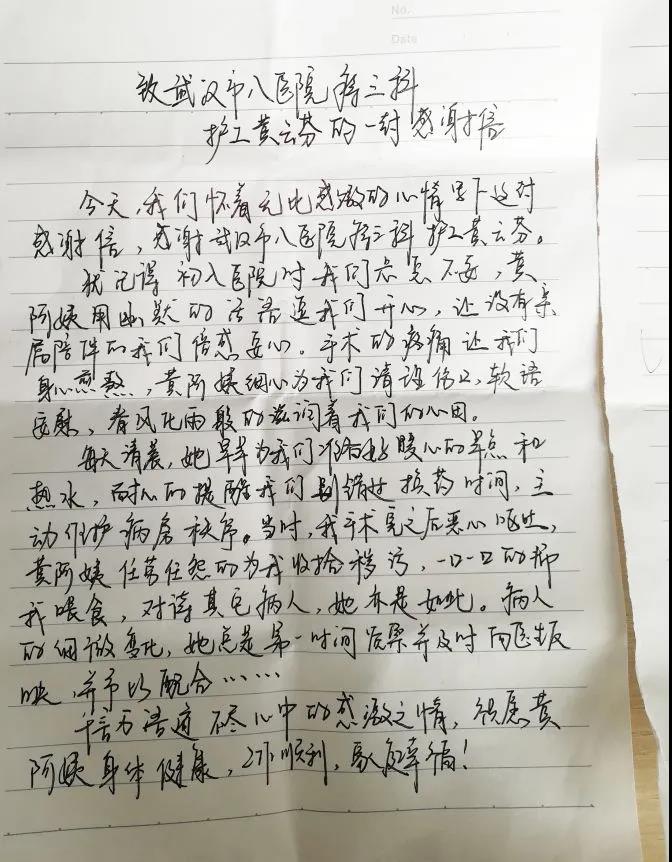 No.
Date
致武汉市八医院痔三科
护工黄云芬的一封感谢信
今天,我们怀着无比感激的心情写下这封
感谢信,感谢武汉市八医院痔三科护工黄云芬。
犹记得初入医院时我们忐忑不安,黄
阿姨用幽默的话语逗我们开心,让没有亲
属陪伴的我们倍感安心。手术的疼痛让我们
身心煎熬,黄阿姨细心为我们清理伤口,软语
安慰,春风化雨般的滋润着我们的心田。
每天清晨,她早早为我们准备好暖心的早点和
热水,耐心的提醒我们别错过换药时间,主
动维护病房秩序。当时,我手术完之后恶心呕吐,
黄阿姨任劳任怨的为我收拾秽污,一口一口的抑
我喂食,对待其它病人,她亦是如此。病人
的细微变化,她总是第一时间发现并及时向医生反
映,并予以配合……
千言万语道不尽心中的感激之情,祝愿黄
阿姨身体健康,工作顺利,阖家幸福!